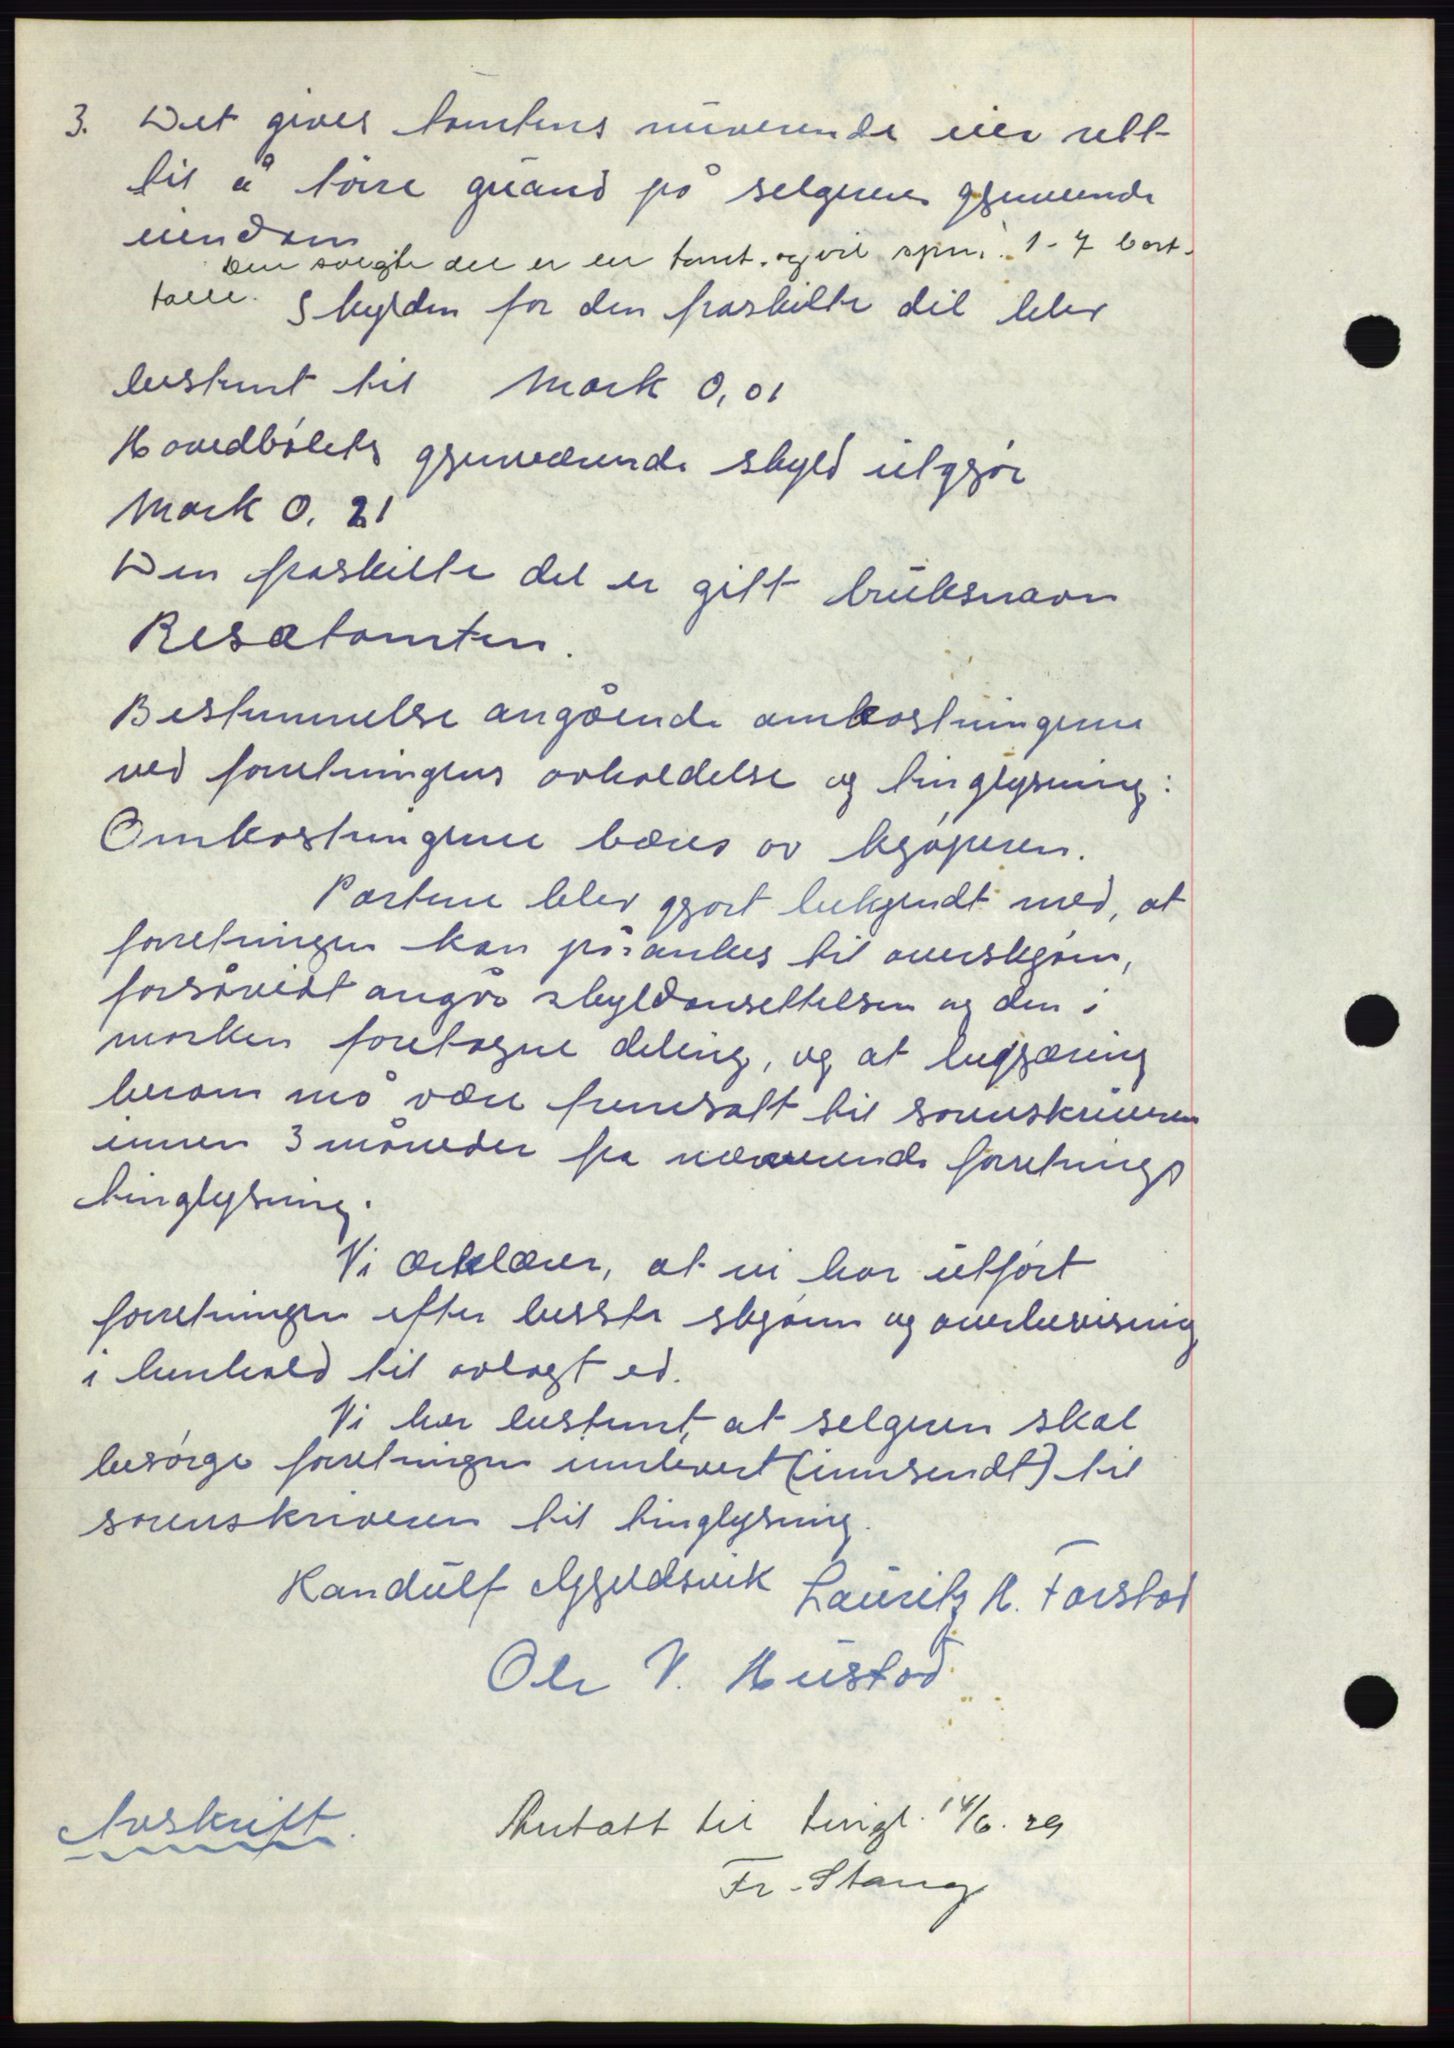 3. Det gives tomtens nuverende eier rett
til å tørre grand på selgerens gjenverende
eiendom
Den solgte del er en tomt. og vil spm. 1-7 bort-
falle.
Skylden for den fraskilte del blev
bestemt til Mark 0,01
Hovedbølets gjenværende skyld utgjør
Mark 0.21
Den fraskilte del er gitt bruksnavn
Resatomten.
Bestemmelse angående omkostningene
ved forretningens avholdelse og tinglysning:
Omkostningene bæres av kjøperen.
Partene blev gjort bekjendt med, at
forretningen kan påankes til overskjønn,
forsåvidt angår skyldansettelsen og den i
marken foretagne deling, og at begjæring
herom må være fremsatt til sorenskriveren
innen 3 måneder fra nærværende forretnings
tinglysning.
Vi ærklærer, at vi har utført
forretningen efter beste skjønn og overbevisning
i henhold til avlagt ed.
Vi har bestemt, at selgeren skal
besørge forretningen innlevert (innsendt) til
sorenskriveren til tinglysning.
Randulf Mjeldsvik Lauritz H. Farstad
Ole V. Hustad
Avskrift.
Antatt til tingl. 14/6. 29
Fr. Stang